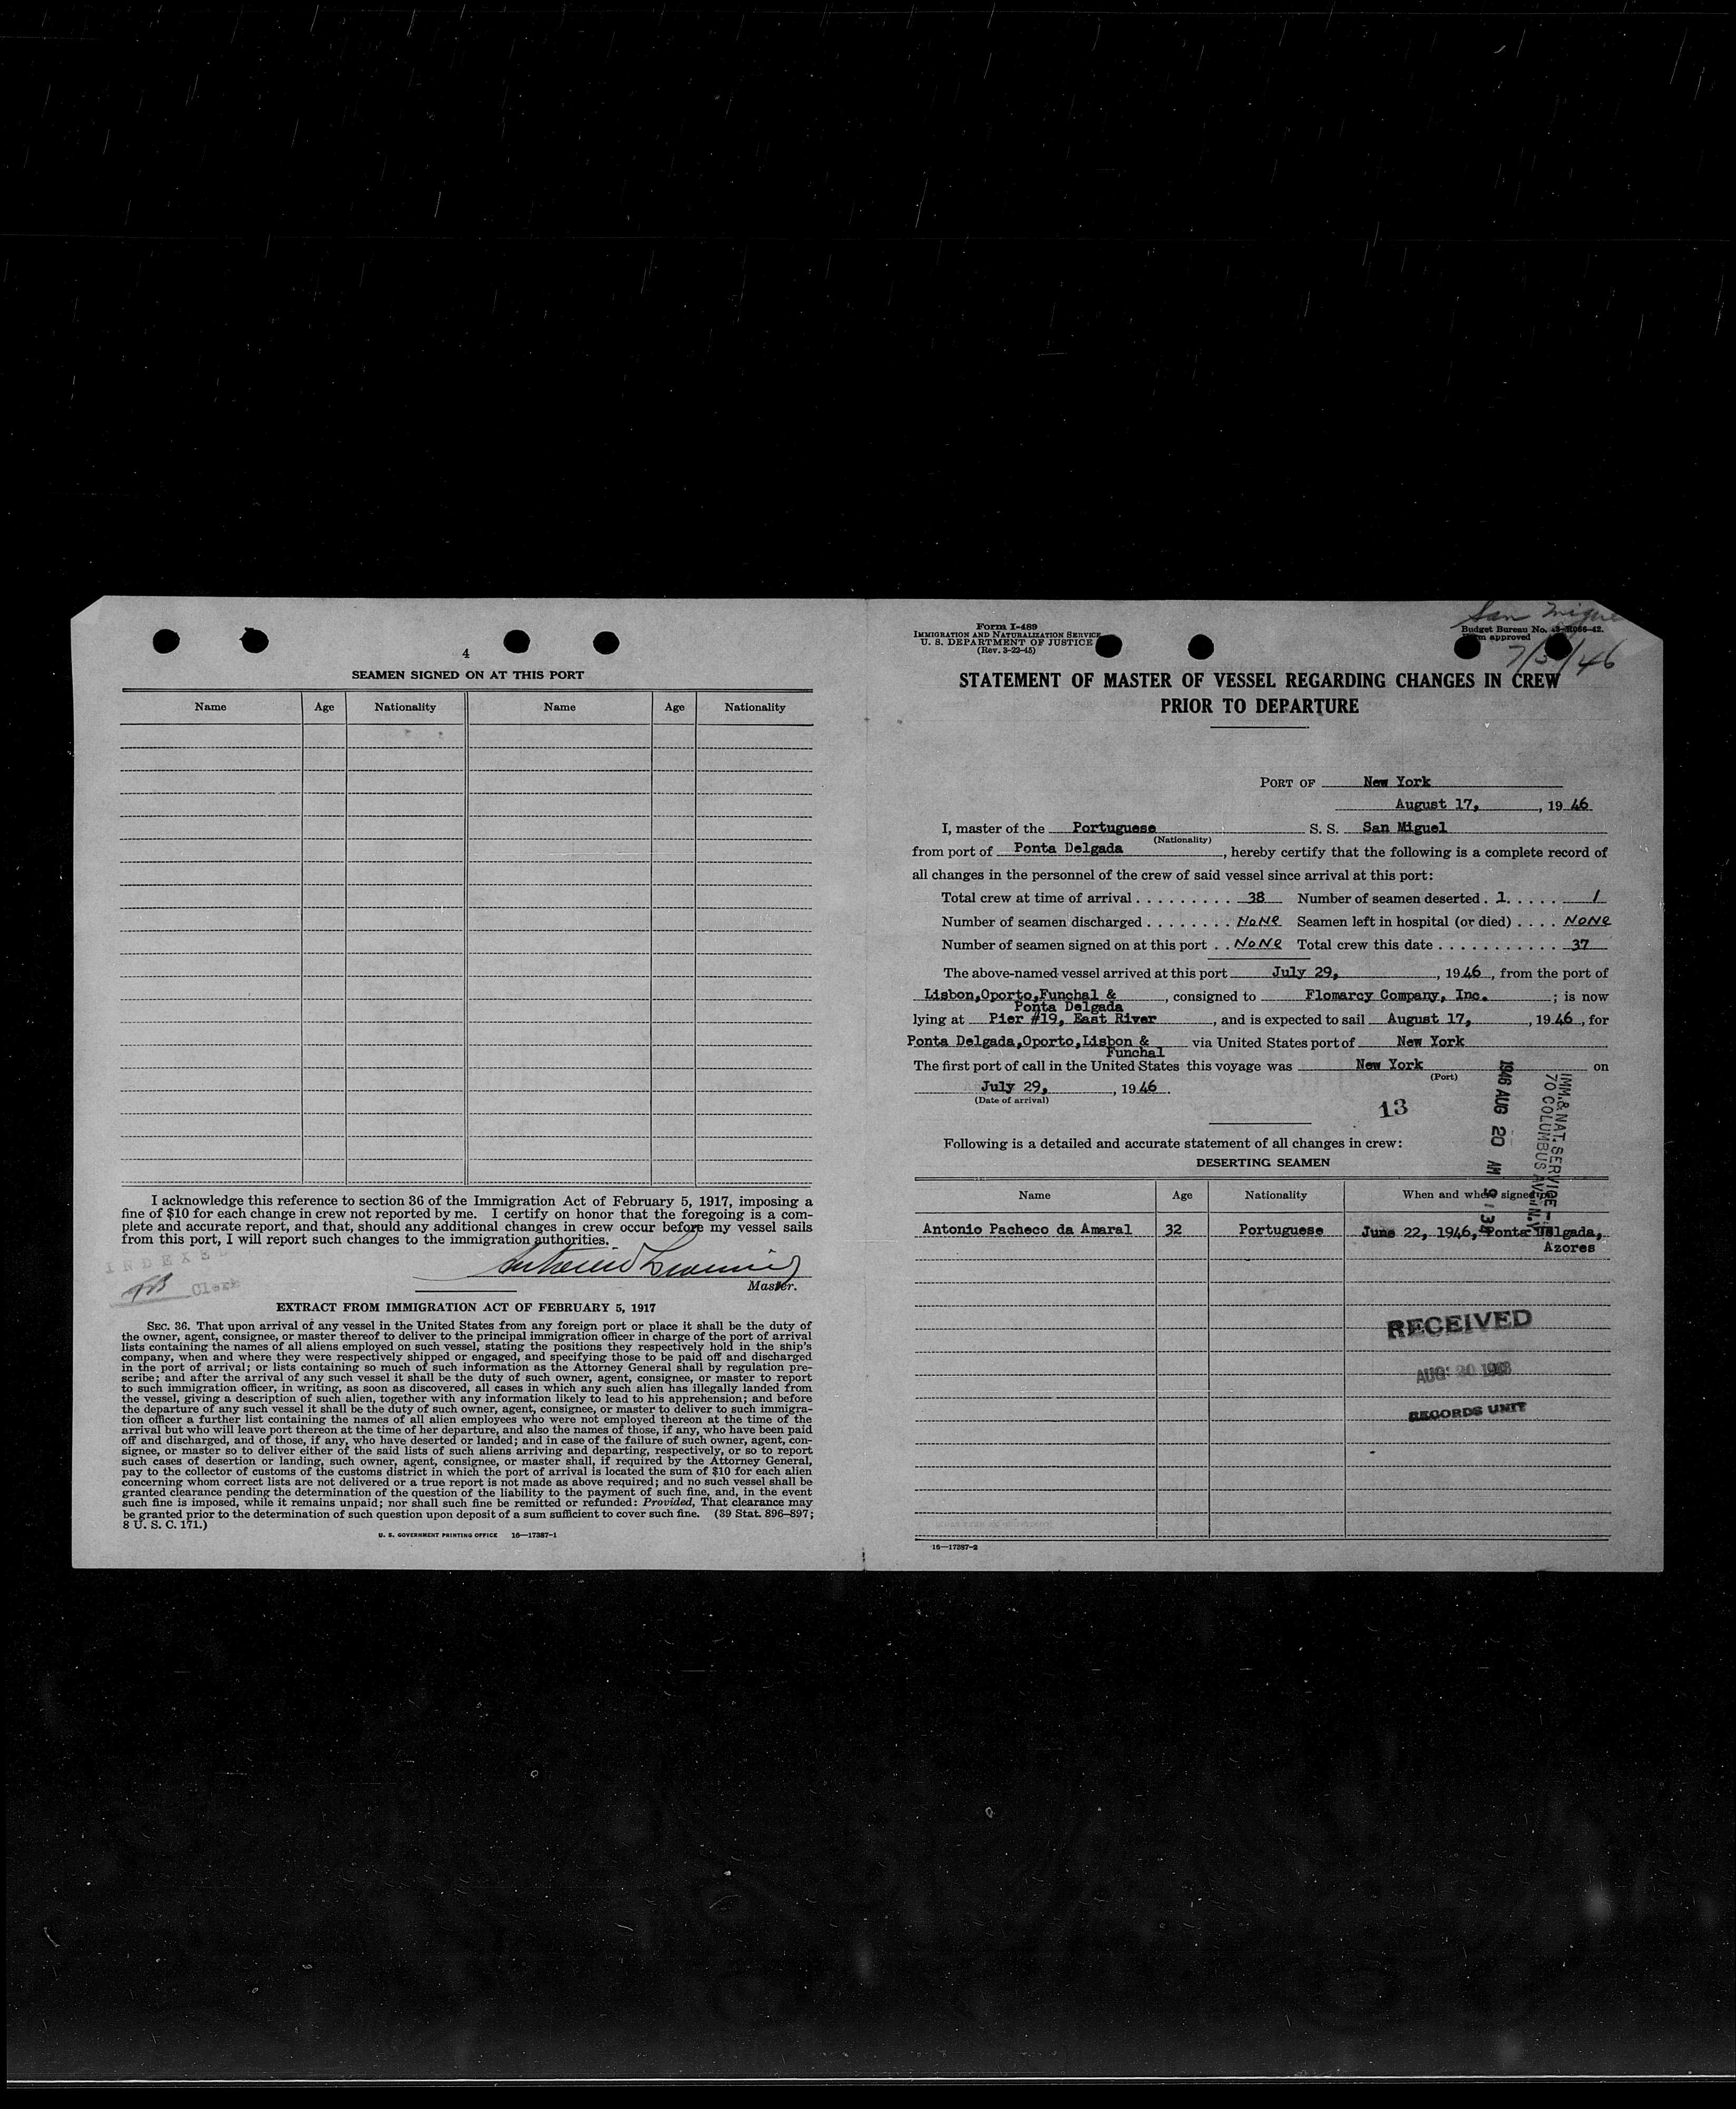 4
SEAMEN SIGNED ON AT THIS PORT
Name Age Nationality Name Age Nationality
I acknowledge this reference to section 36 of the Immigration Act of February 5, 1917, imposing a
fine of $10 for each change in crew not reported by me. I certify on honor that the foregoing is a com-
plete and accurate report, and that, should any additional changes in crew occur before my vessel sails
from this port, I will report such changes to the immigration authorities.
INDEXED
Clerk
Master.
EXTRACT FROM IMMIGRATION ACT OF FEBRUARY 5, 1917
SEC. 36. That upon arrival of any vessel in the United States from any foreign port or place it shall be the duty of
the owner, agent, consignee, or master thereof to deliver to the principal immigration officer in charge of the port of arrival
lists containing the names of all aliens employed on such vessel, stating the positions they respectively hold in the ship's
company, when and where they were respectively shipped or engaged, and specifying those to be paid off and discharged
in the port of arrival; or lists containing so much of such information as the Attorney General shall by regulation pre-
scribe; and after the arrival of any such vessel it shall be the duty of such owner, agent, consignee, or master to report
to such immigration officer, in writing, as soon as discovered, all cases in which any such alien has illegally landed from
the vessel, giving a description of such alien, together with any information likely to lead to his apprehension; and before
the departure of any such vessel it shall be the duty of such owner, agent, consignee, or master to deliver to such immigra-
tion officer a further list containing the names of all alien employees who were not employed thereon at the time of the
arrival but who will leave port thereon at the time of her departure, and also the names of those, if any, who have been paid
off and discharged, and of those, if any, who have deserted or landed; and in case of the failure of such owner, agent, con-
signee, or master so to deliver either of the said lists of such aliens arriving and departing, respectively, or so to report
such cases of desertion or landing, such owner, agent, consignee, or master shall, if required by the Attorney General,
pay to the collector of customs of the customs district in which the port of arrival is located the sum of $10 for each alien
concerning whom correct lists are not delivered or a true report is not made as above required; and no such vessel shall be
granted clearance pending the determination of the question of the liability to the payment of such fine, and, in the event
such fine is imposed, while it remains unpaid; nor shall such fine be remitted or refunded: Provided, That clearance may
be granted prior to the determination of such question upon deposit of a sum sufficient to cover such fine. (39 Stat. 896–897;
8 U. S. C. 171.)
U. S. GOVERNMENT PRINTING OFFICE 16—17387-1
Form I-489
IMMIGRATION AND NATURALIZATION SERVICE
U. S. DEPARTMENT OF JUSTICE
(Rev. 3-22-45)
San Miguel
Budget Bureau No.
approved
STATEMENT OF MASTER OF VESSEL REGARDING CHANGES IN CREW
PRIOR TO DEPARTURE
PORT OF New York
August 17, , 19 46
I, master of the Portuguese S. S. San Miguel
(Nationality)
from port of Ponta Delgada , hereby certify that the following is a complete record of
all changes in the personnel of the crew of said vessel since arrival at this port:
Total crew at time of arrival . . . . . . . . . . 38 Number of seamen deserted . 1. . . . . . 1
Number of seamen discharged . . . . . . . . NONE Seamen left in hospital (or died) . . . . NONE
Number of seamen signed on at this port . . NONE Total crew this date . . . . . . . . . . . 37
The above-named vessel arrived at this port July 29, , 19 46 , from the port of
Lisbon,Oporto,Funchal & , consigned to Flomarcy Company, Inc. ; is now
Ponta Delgada
lying at Pier #19, East River , and is expected to sail August 17, , 19 46 , for
Ponta Delgada,Oporto,Lisbon & via United States port of New York
Funchal
The first port of call in the United States this voyage was New York on
(Port)
July 29, , 19 46 .
(Date of arrival)
13
1946 AUG 20 AM 9 34
IMM. & NAT. SERVICE
70 COLUMBUS AV. N.Y.
Following is a detailed and accurate statement of all changes in crew:
DESERTING SEAMEN
Name Age Nationality When and where signed
Antonio Pacheco da Amaral 32 Portuguese June 22, 1946, Ponta Delgada,
Azores
RECEIVED
AUG 20 1946
RECORDS UNIT
16—17387-2